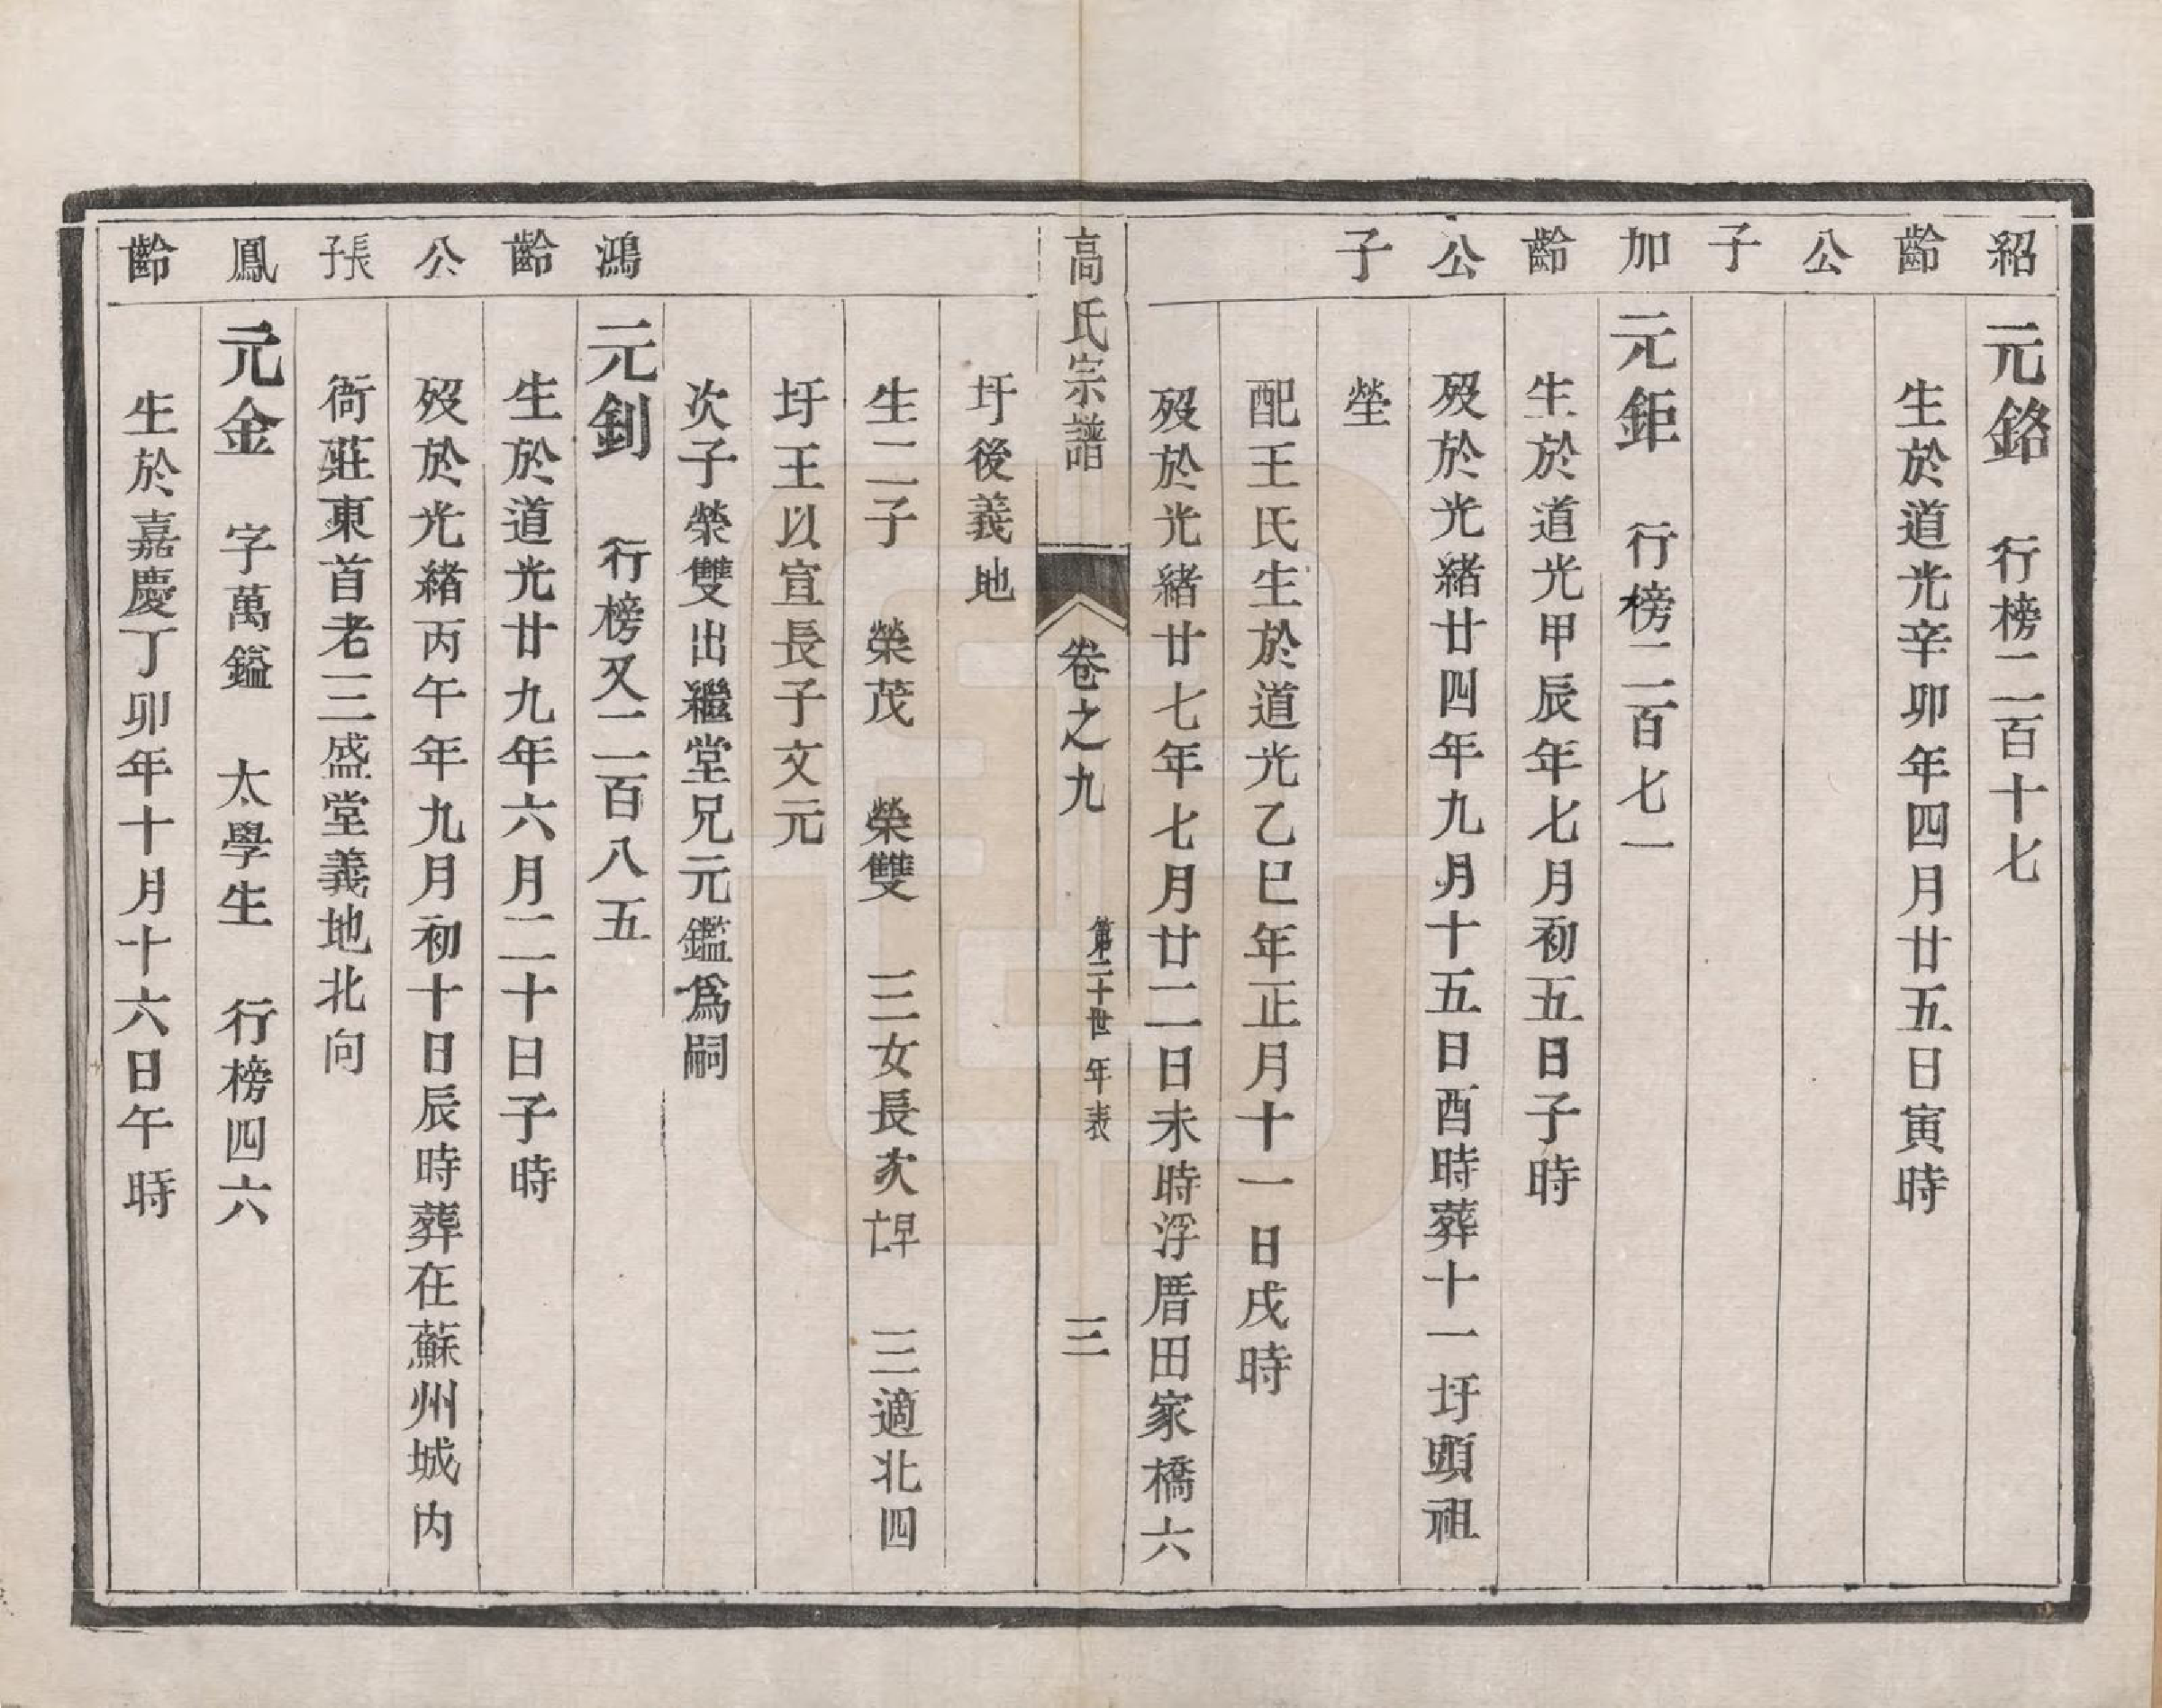 紹 元鉻 行榜二百十七
齡 生於道光辛卯年四月廿五日寅時
公
子
加 元鉅 行榜二百七一
齡 生於道光甲辰年七月初五日子時
公 歿於光緒廿四年九月十五日酉時葬十一圩頭祖
子 塋
配王氏生於道光乙巳年正月十一日戌時
歿於光緒廿七年七月廿二日未時浮厝田家橋六
高氏宗譜 卷之九 第二十世年表 三
圩後義地
生二子 榮茂 榮雙 三女長次早亡 三適北四
圩王以宣長子文元
次子榮雙出繼堂兄元鑑爲嗣
鴻 元釗 行榜又二百八五
齡 生於道光廿九年六月二十日子時
公 歿於光緒丙午年九月初十日辰時葬在蘇州城内
長子 衙莊東首老三盛堂義地北向
鳳 元金 字萬鎰 太學生 行榜四六
齡 生於嘉慶丁卯年十月十六日午時